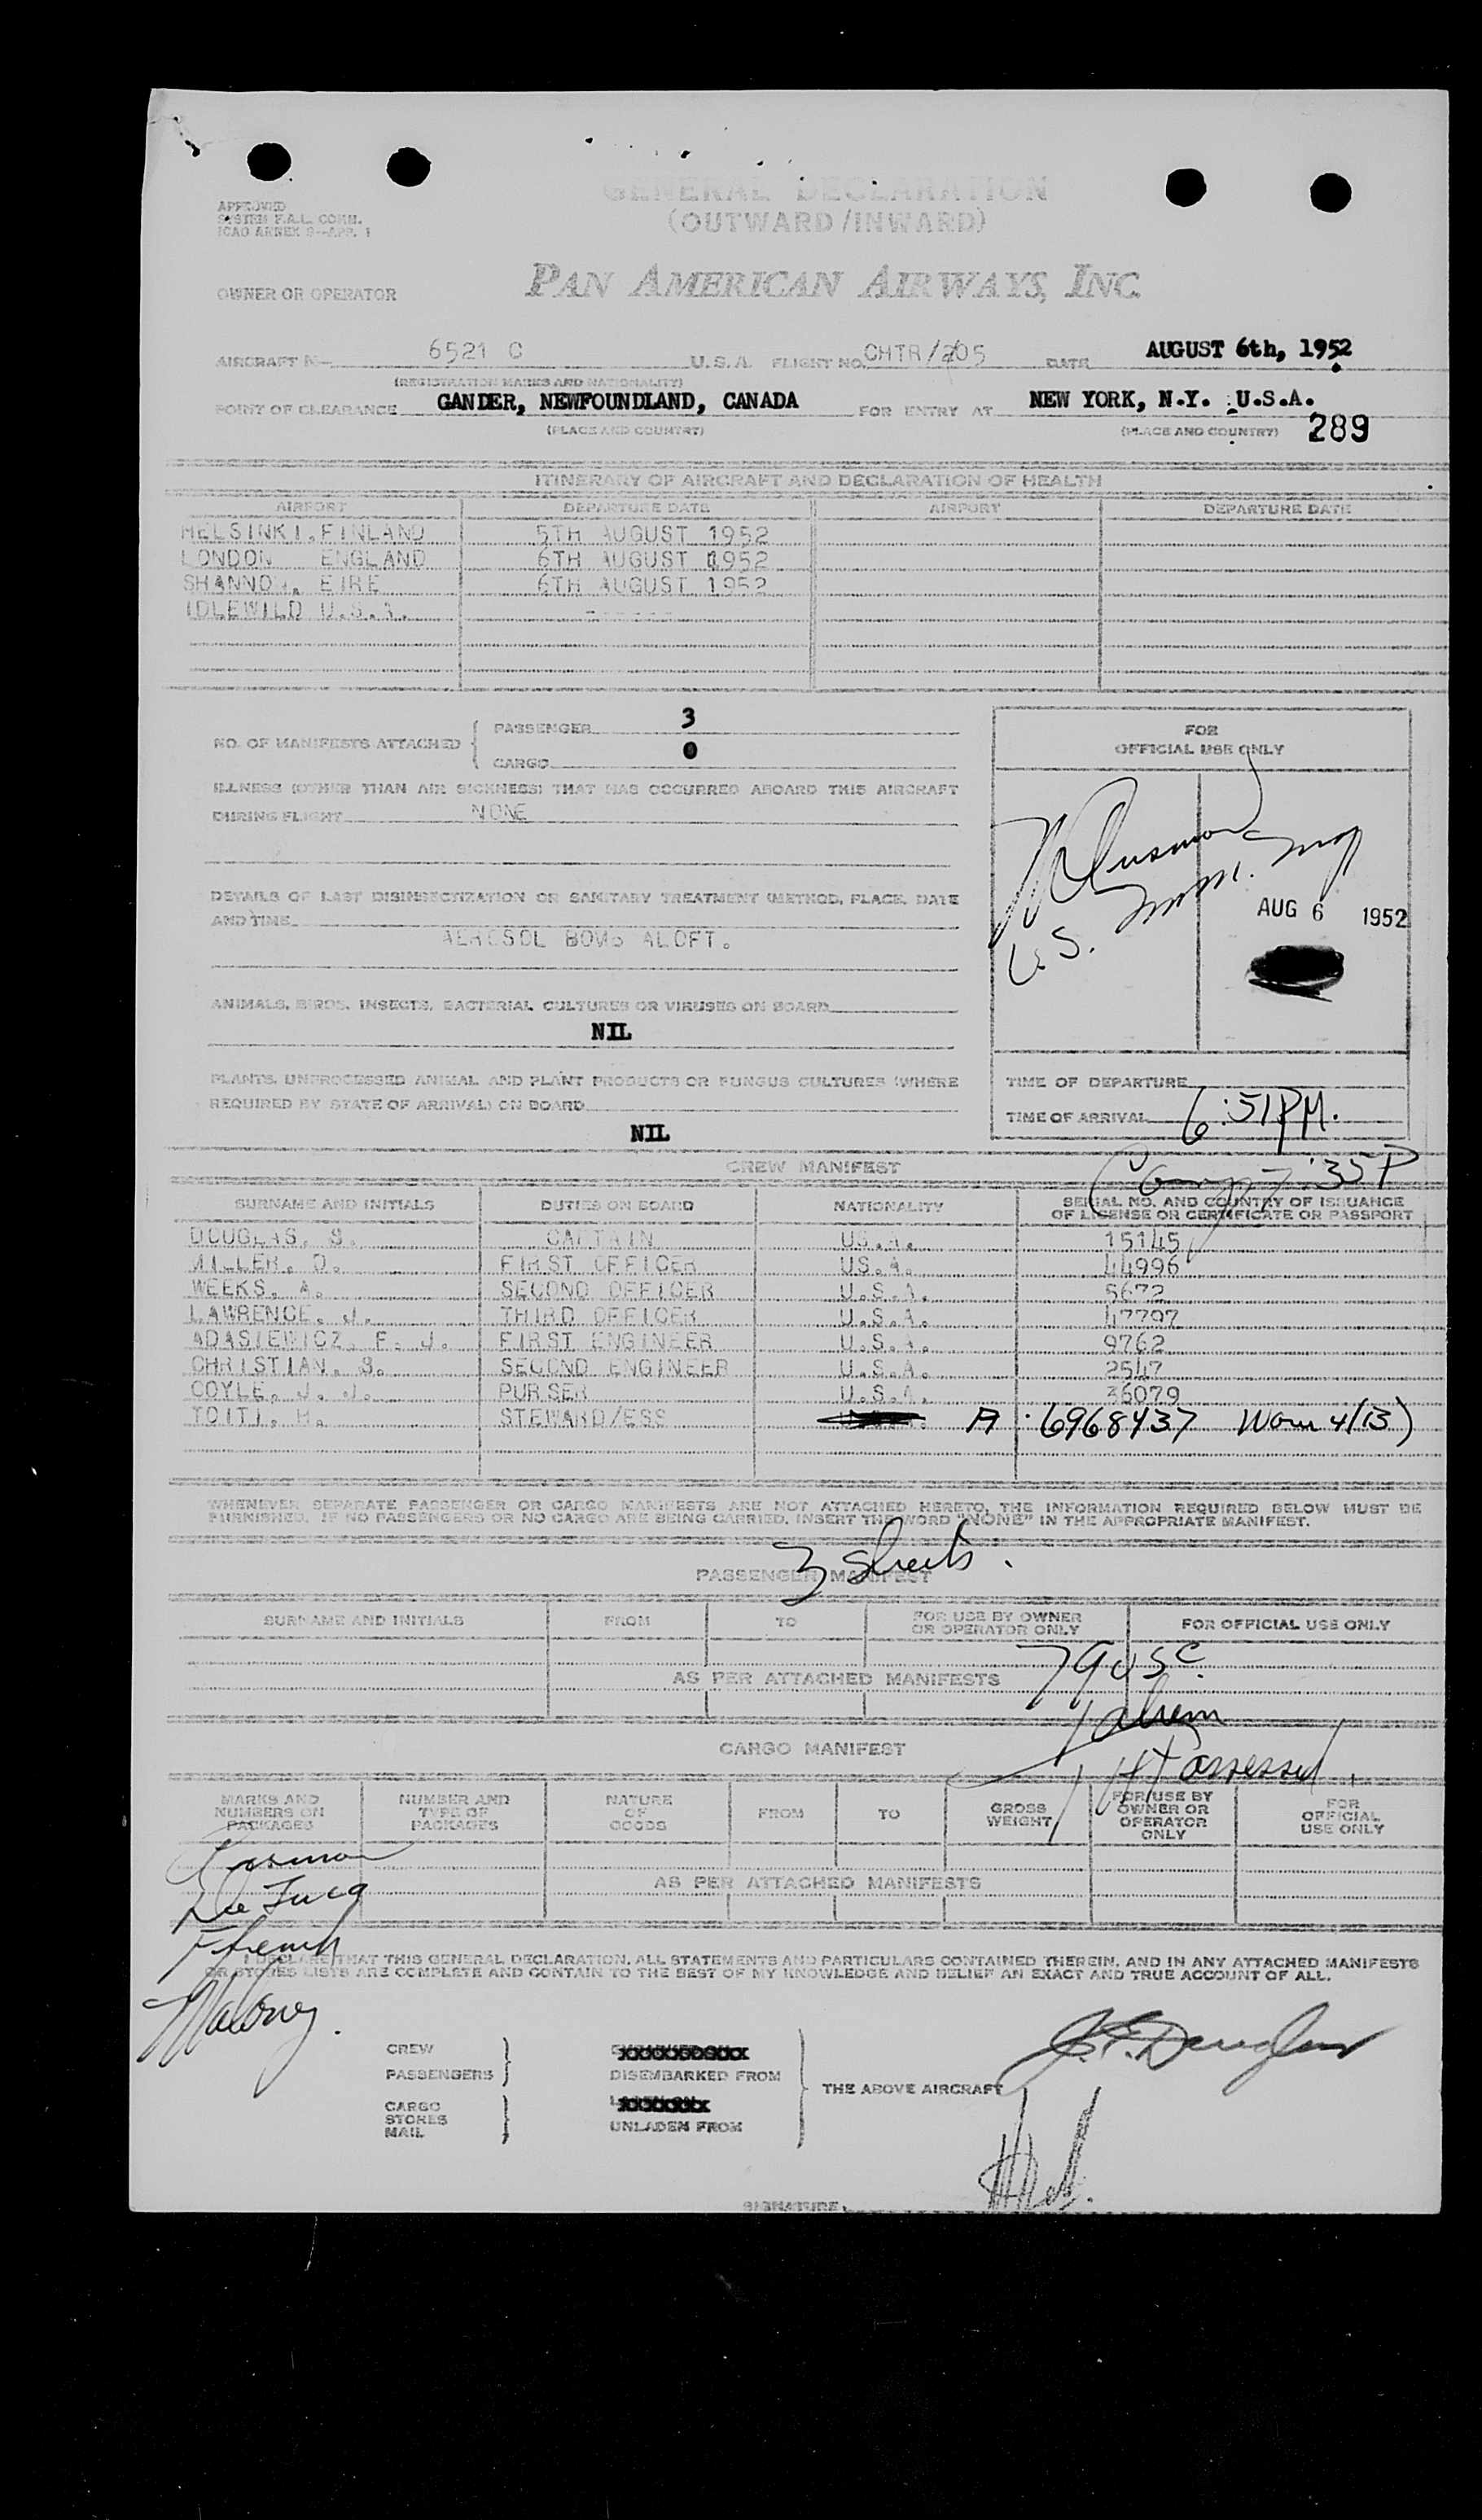 GENERAL DECLARATION
(OUTWARD/INWARD)
APPROVED
SYSTEM F.A.L. COMM.
ICAO ANNEX 9—APP. 1
OWNER OR OPERATOR PAN AMERICAN AIRWAYS, INC.
AIRCRAFT N— 6521 C U.S.A. FLIGHT NO. CHTR/205 DATE AUGUST 6th, 1952
(REGISTRATION MARKS AND NATIONALITY)
POINT OF CLEARANCE GANDER, NEWFOUNDLAND, CANADA FOR ENTRY AT NEW YORK, N.Y. U.S.A.
(PLACE AND COUNTRY) (PLACE AND COUNTRY) 289
ITINERARY OF AIRCRAFT AND DECLARATION OF HEALTH
AIRPORT DEPARTURE DATE AIRPORT DEPARTURE DATE
HELSINKI, FINLAND 5TH AUGUST 1952
LONDON ENGLAND 6TH AUGUST 1952
SHANNON, EIRE 6TH AUGUST 1952
IDLEWILD U.S.A. - - - - - -
NO. OF MANIFESTS ATTACHED { PASSENGER 3
CARGO 0
ILLNESS (OTHER THAN AIR SICKNESS) THAT HAS OCCURRED ABOARD THIS AIRCRAFT
DURING FLIGHT NONE
DETAILS OF LAST DISINSECTIZATION OR SANITARY TREATMENT (METHOD, PLACE, DATE
AND TIME
AEROSOL BOMB ALOFT.
ANIMALS, BIRDS, INSECTS, BACTERIAL CULTURES OR VIRUSES ON BOARD
NIL
PLANTS, UNPROCESSED ANIMAL AND PLANT PRODUCTS OR FUNGUS CULTURES (WHERE
REQUIRED BY STATE OF ARRIVAL) ON BOARD
NIL
FOR
OFFICIAL USE ONLY
U.S. Imm. Insp
AUG 6 1952
TIME OF DEPARTURE
TIME OF ARRIVAL 6:51PM.
7:35P
CREW MANIFEST
SURNAME AND INITIALS DUTIES ON BOARD NATIONALITY SERIAL NO. AND COUNTRY OF ISSUANCE
OF LICENSE OR CERTIFICATE OR PASSPORT
DOUGLAS, S. CAPTAIN US.A. 15145
MILLER, D. FIRST OFFICER US.A. 44996
WEEKS, A. SECOND OFFICER U.S.A. 5672
LAWRENCE, J. THIRD OFFICER U.S.A. 47797
ADASIEWICZ, F. J. FIRST ENGINEER U.S.A. 9762
CHRISTIAN, S. SECOND ENGINEER U.S.A. 2547
COYLE, J. J. PURSER U.S.A. 36079
TOITI, H. STEWARD/ESS A 6968437
WHENEVER SEPARATE PASSENGER OR CARGO MANIFESTS ARE NOT ATTACHED HERETO, THE INFORMATION REQUIRED BELOW MUST BE
FURNISHED. IF NO PASSENGERS OR NO CARGO ARE BEING CARRIED, INSERT THE WORD "NONE" IN THE APPROPRIATE MANIFEST.
3 sheets.
PASSENGER MANIFEST
SURNAME AND INITIALS FROM TO FOR USE BY OWNER
OR OPERATOR ONLY FOR OFFICIAL USE ONLY
79 USC
AS PER ATTACHED MANIFESTS
1 alien
CARGO MANIFEST
1 HT assessed.
MARKS AND
NUMBERS ON
PACKAGES NUMBER AND
TYPE OF
PACKAGES NATURE
OF
GOODS FROM TO GROSS
WEIGHT FOR USE BY
OWNER OR
OPERATOR
ONLY FOR
OFFICIAL
USE ONLY
AS PER ATTACHED MANIFESTS
De Luca
French
Malony.
I DECLARE THAT THIS GENERAL DECLARATION, ALL STATEMENTS AND PARTICULARS CONTAINED THEREIN, AND IN ANY ATTACHED MANIFESTS
OR STORES LISTS ARE COMPLETE AND CONTAIN TO THE BEST OF MY KNOWLEDGE AND BELIEF AN EXACT AND TRUE ACCOUNT OF ALL.
CREW
PASSENGERS } DISEMBARKED FROM
CARGO
STORES
MAIL } UNLADEN FROM
THE ABOVE AIRCRAFT
S.E. Douglas
SIGNATURE